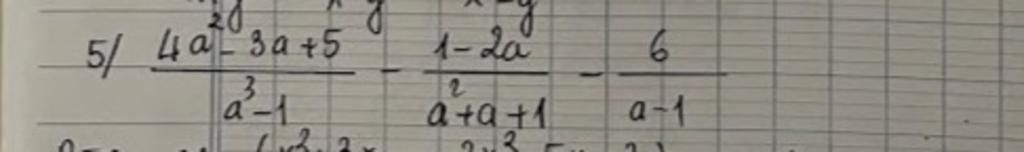 5/ (4a² - 3a + 5)/(a³ - 1) - (1 - 2a)/(a² + a + 1) - 6/(a - 1)